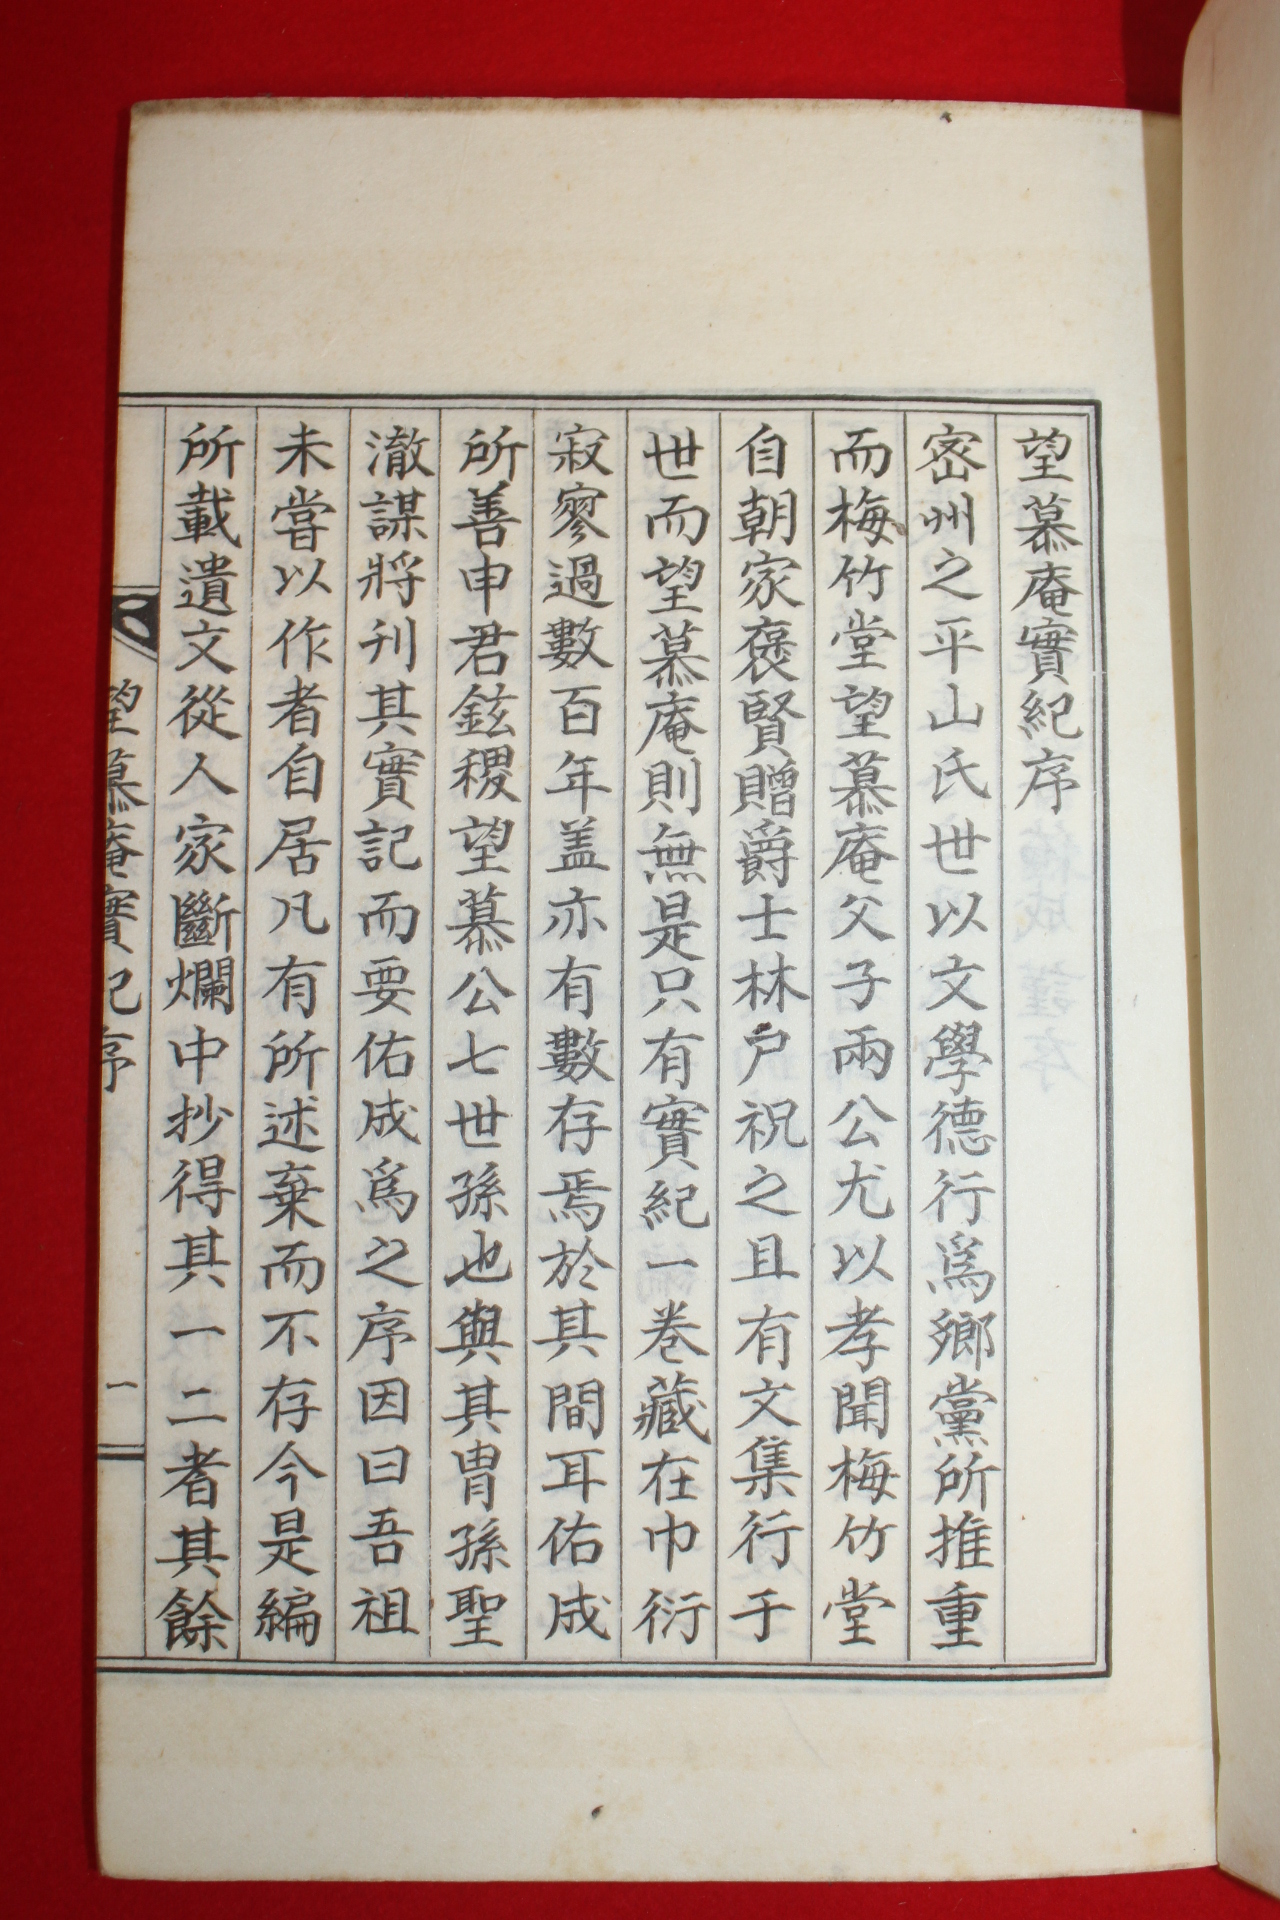 望慕庵實紀序
密州之平山氏世以文學德行爲鄉黨所推重
而梅竹堂望慕庵父子兩公尤以孝聞梅竹堂
自朝家褒賢贈爵士林尸祝之且有文集行于
世而望慕庵則無是只有實紀一卷藏在巾衍
寂寥過數百年盖亦有數存焉於其間耳佑成
所善申君鉉稷望慕公七世孫也與其胄孫聖
澈謀將刊其實記而要佑成爲之序因曰吾祖
未甞以作者自居凡有所述棄而不存今是編
所載遺文從人家斷爛中抄得其一二者其餘
望慕庵實紀序
一